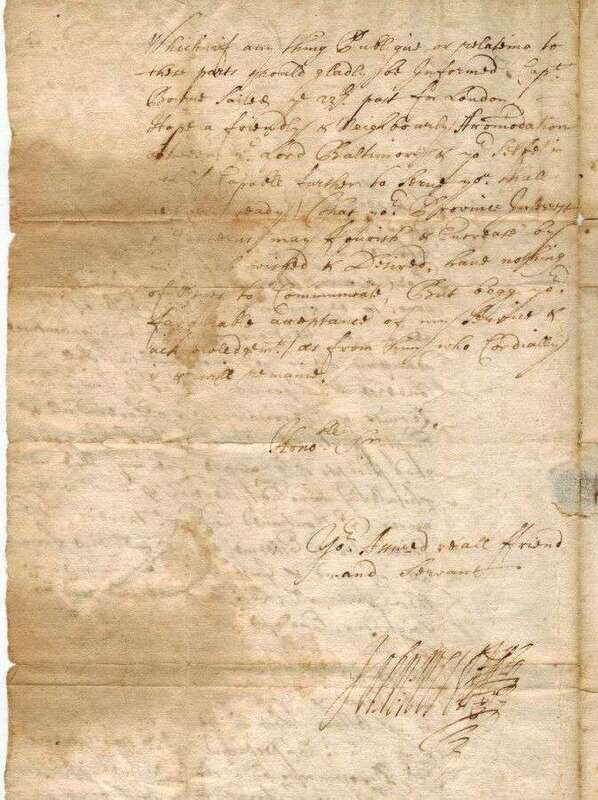 Which if any thing Publique or relateing to
these parts should gladly be Informed Capt.
Sailed ye 23d. past for London
Hope a friendly & Neighbourly Acomodation
between ye. Lord Baltimore & yo. selfe
if Capable further to Serve yo. shall
ready, that yor. Province
may flourish & Encrease by
wished & Desired, have nothing
of to Communicate, But begg yo.
take acceptance of my Service &
acknowledgemt. as from him who Cordially
is & will remaine.
Honoble. Sir
Yor. Assured reall ffriend
and Servant
John